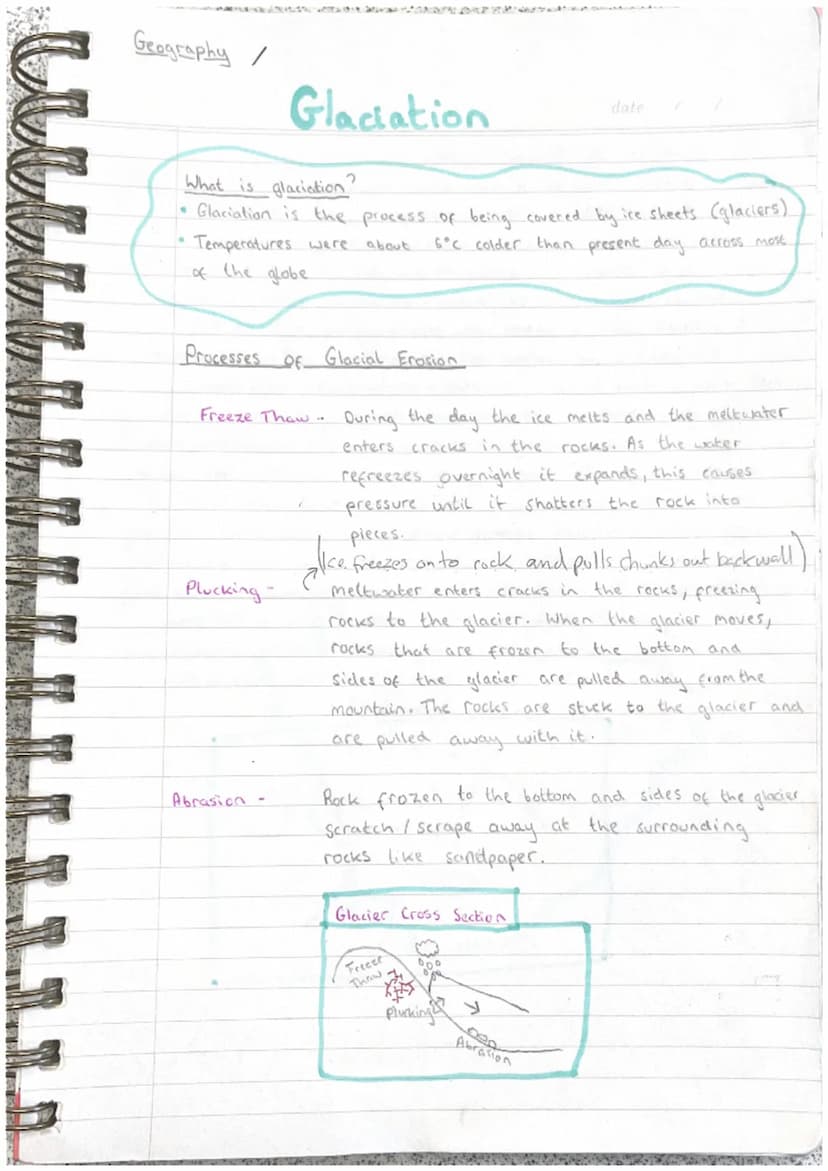 Geography /
Glaciation
date / /
What is glaciation?
• Glaciation is the process of being covered by ice sheets (glaciers)
• Temperatures were about 5°C colder than present day across most
of the globe
Processes of Glacial Erosion
Freeze Thaw - During the day the ice melts and the meltwater
enters cracks in the rocks. As the water
refreezes overnight it expands, this causes
pressure until it shatters the rock into
pieces.
(Ice freezes on to rock and pulls chunks out backwall)
Plucking - meltwater enters cracks in the rocks, freezing
rocks to the glacier. When the glacier moves,
rocks that are frozen to the bottom and
sides of the glacier are pulled away from the
mountain. The rocks are stuck to the glacier and
are pulled away with it.
Abrasion - Rock frozen to the bottom and sides of the glacier
scratch / scrape away at the surrounding
rocks like sandpaper.
Glacier Cross Section
Freeze
Thaw
Plucking
Abrasion